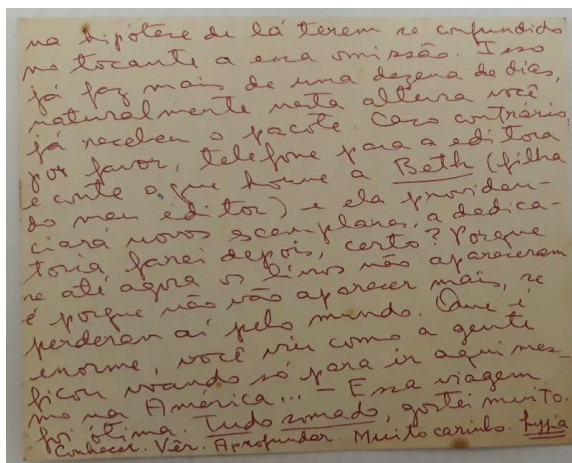 na hipótese de lá terem se confundido
no tocante a essa omissão. Isso
já faz mais de uma dezena de dias,
naturalmente nesta altura você
já recebeu o pacote. Caso contrário,
por favor, telefone para a editora
e conte o que houve a Beth (filha
do meu editor) e ela providen-
ciará novos exemplares, a dedica-
toria farei depois, certo? Porque
se até agora os livros não apareceram
é porque não vão aparecer mais, se
perderam aí pelo mundo. Que é
enorme, você viu como a gente
ficou voando só para ir aqui mes-
mo na América... - Essa viagem
foi ótima. Tudo somado, gostei muito.
Conhecer. Vêr. Aprofundar. Muito carinho. Lygia